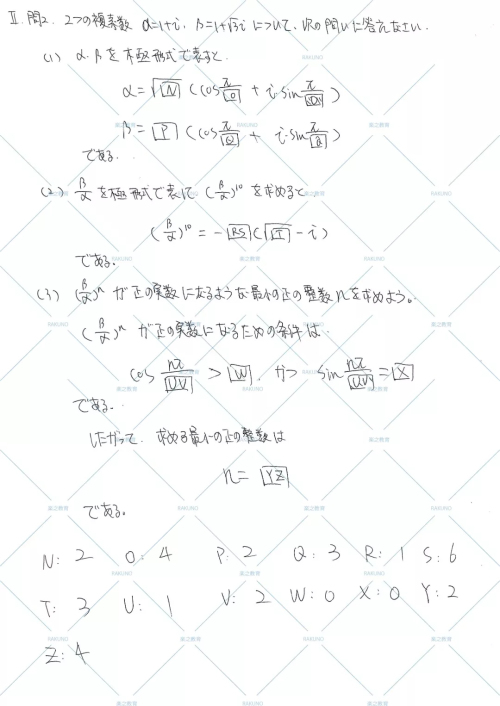 Ⅱ. 問2. 2つの複素数 α=1+i, β=1+√3i について, 次の問いに答えなさい.
(1) α.βを極形式で表すと.
α=√[N] (cos π/[O] + i·sin π/[O])
β= [P] (cos π/[Q] + i·sin π/[Q])
である.
(2) β/α を極形式で表して, (β/α)^10 を求めると
(β/α)^10 = -[RS](√[T] - i)
である.
(3) (β/α)^n が正の実数になるような最小の正の整数nを求めよう。
(β/α)^n が正の実数になるための条件は
cos nπ/[UV] > [W], かつ sin nπ/[UV] = [X]
である.
したがって. 求める最小の正の整数は
n= [YZ]
である。
N: 2 O: 4 P: 2 Q: 3 R: 1 S: 6
T: 3 U: 1 V: 2 W: 0 X: 0 Y: 2
Z: 4